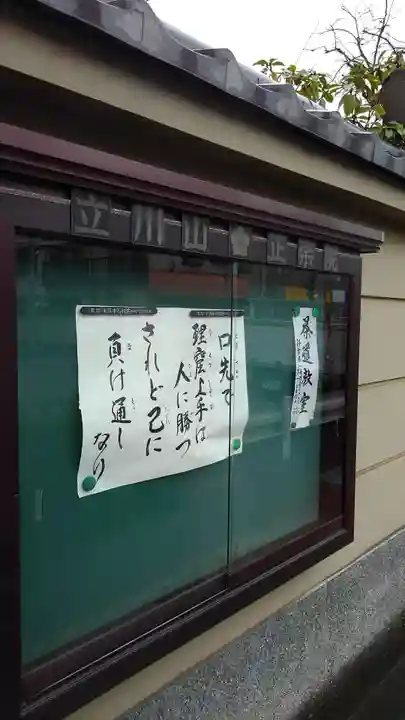 立川山
口先で
理窟上手は
人に勝つ
されど己に
負け通し
なり
茶道教室